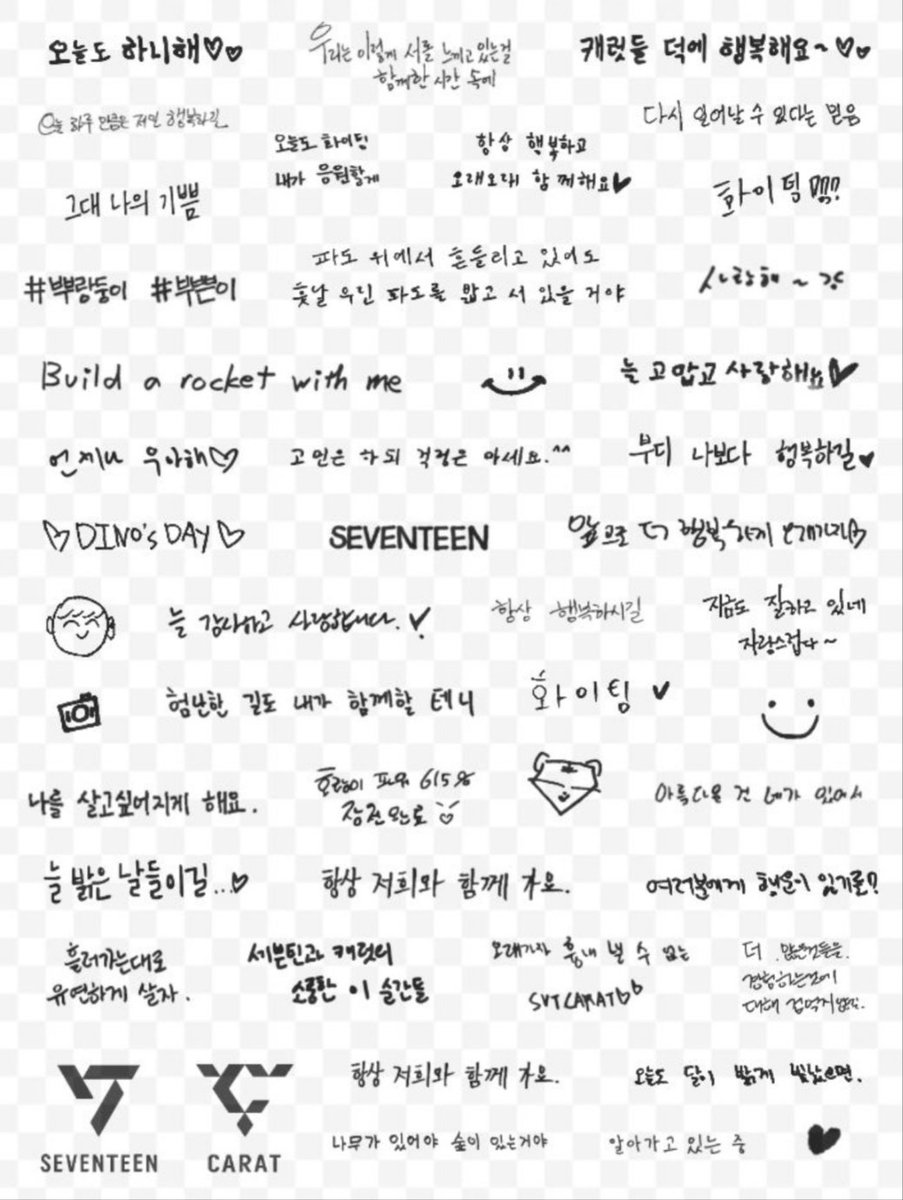 오늘도 하니해♡♡
우리는 이렇게 서롤 느끼고 있는걸
함께한 시간 속에
캐럿들 덕에 행복해요~♡♡
오늘 하루 만큼은 제일 행복하길
오늘도 화이팅
내가 응원할게
항상 행복하고
오래오래 함께해요♥
다시 일어날 수 있다는 믿음
그대 나의 기쁨
화이팅
#뿌랑둥이 #부쁜이
파도 위에서 흔들리고 있어도
훗날 우린 파도를 밟고 서 있을 거야
사랑해~
Build a rocket with me
늘 고맙고 사랑해요♥
언제나 우아해♡
고민은 하되 걱정은 마세요.^^
부디 나보다 행복하길♥
♡DINO's DAY♡
SEVENTEEN
앞으로 더 행복하게 오래가자♡
늘 감사하고 사랑합니다.♥
항상 행복하시길
지금도 잘하고 있네
자랑스럽다~
험난한 길도 내가 함께할 테니
화이팅♥
나를 살고싶어지게 해요.
호랑이 파워 615%
장전완료
아름다운 건 네가 있어서
늘 밝은 날들이길...♡
항상 저희와 함께 가요.
여러분에게 행운이 있기를?
흘러가는대로
유연하게 살자.
세븐틴과 캐럿의
소중한 이 순간들
오래가자 흉내 낼 수 없는
SVTCARAT♡♡
더 많은것들을
경험하는것에
대해 겁먹지
SEVENTEEN
CARAT
항상 저희와 함께 가요.
오늘도 달이 밝게 빛났으면.
나무가 있어야 숲이 있는거야
알아가고 있는 중
♥